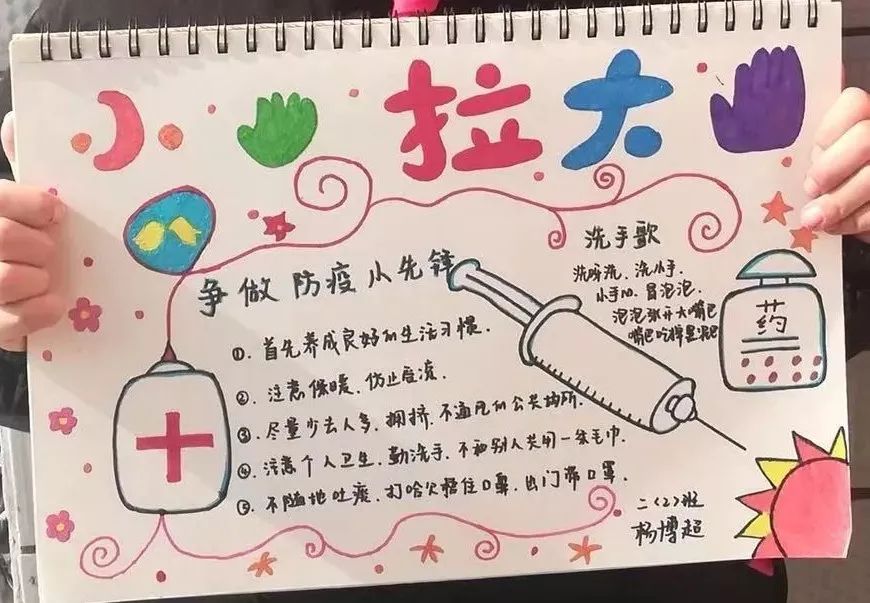 小 拉大
争做防疫小先锋
①. 首先养成良好的生活习惯.
②. 注意保暖、
③. 尽量少去人多、拥挤、不通风的公共场所.
④. 注意个人卫生、勤洗手、不和别人共用一条毛巾.
⑤. 不随地吐痰、打哈欠捂住口鼻、出门带口罩.
洗手歌
洗呀洗、洗小手.
小手心、冒泡泡.
泡泡张开大嘴巴
嘴巴吃掉黑泥巴
药
二(2)班
杨博超